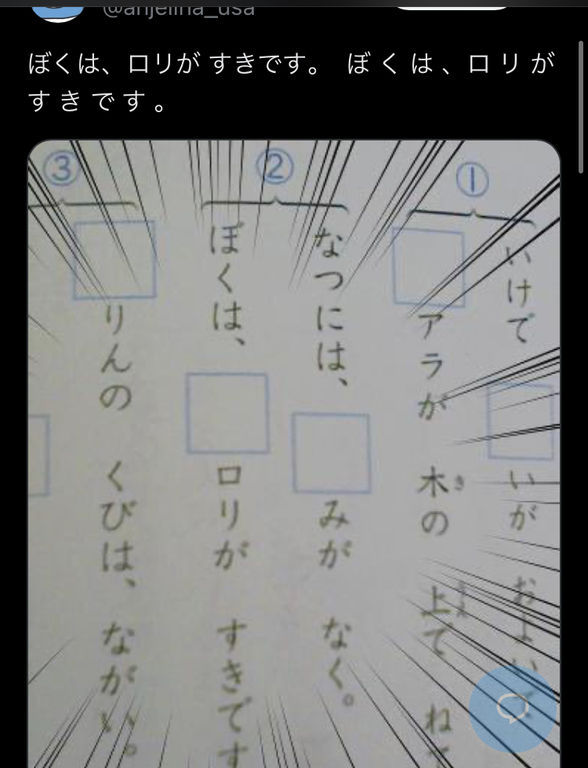 @anjelina_usa
ぼくは、ロリが すきです。 ぼ く は 、ロ リ が
す き で す 。
①
いけで
いが およいで
アラが 木の 上で ねて
き
うえ
②
なつには、 みが なく。
ぼくは、 ロリが すきです
③
りんの くびは、 ながい。